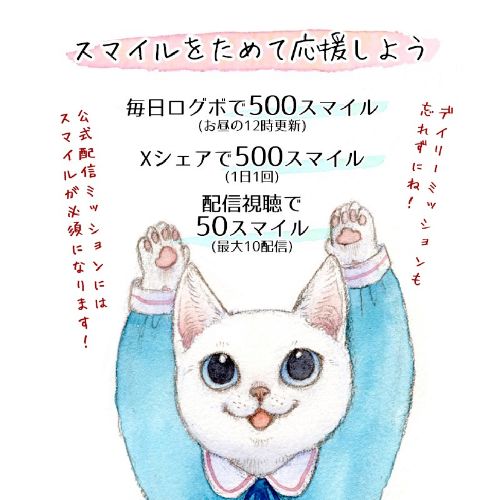 スマイルをためて応援しよう
毎日ログボで500スマイル
(お昼の12時更新)
Xシェアで500スマイル
(1日1回)
配信視聴で
50スマイル
(最大10配信)
デイリーミッションも
忘れずにね!
公式配信ミッションには
スマイルが必須になります!